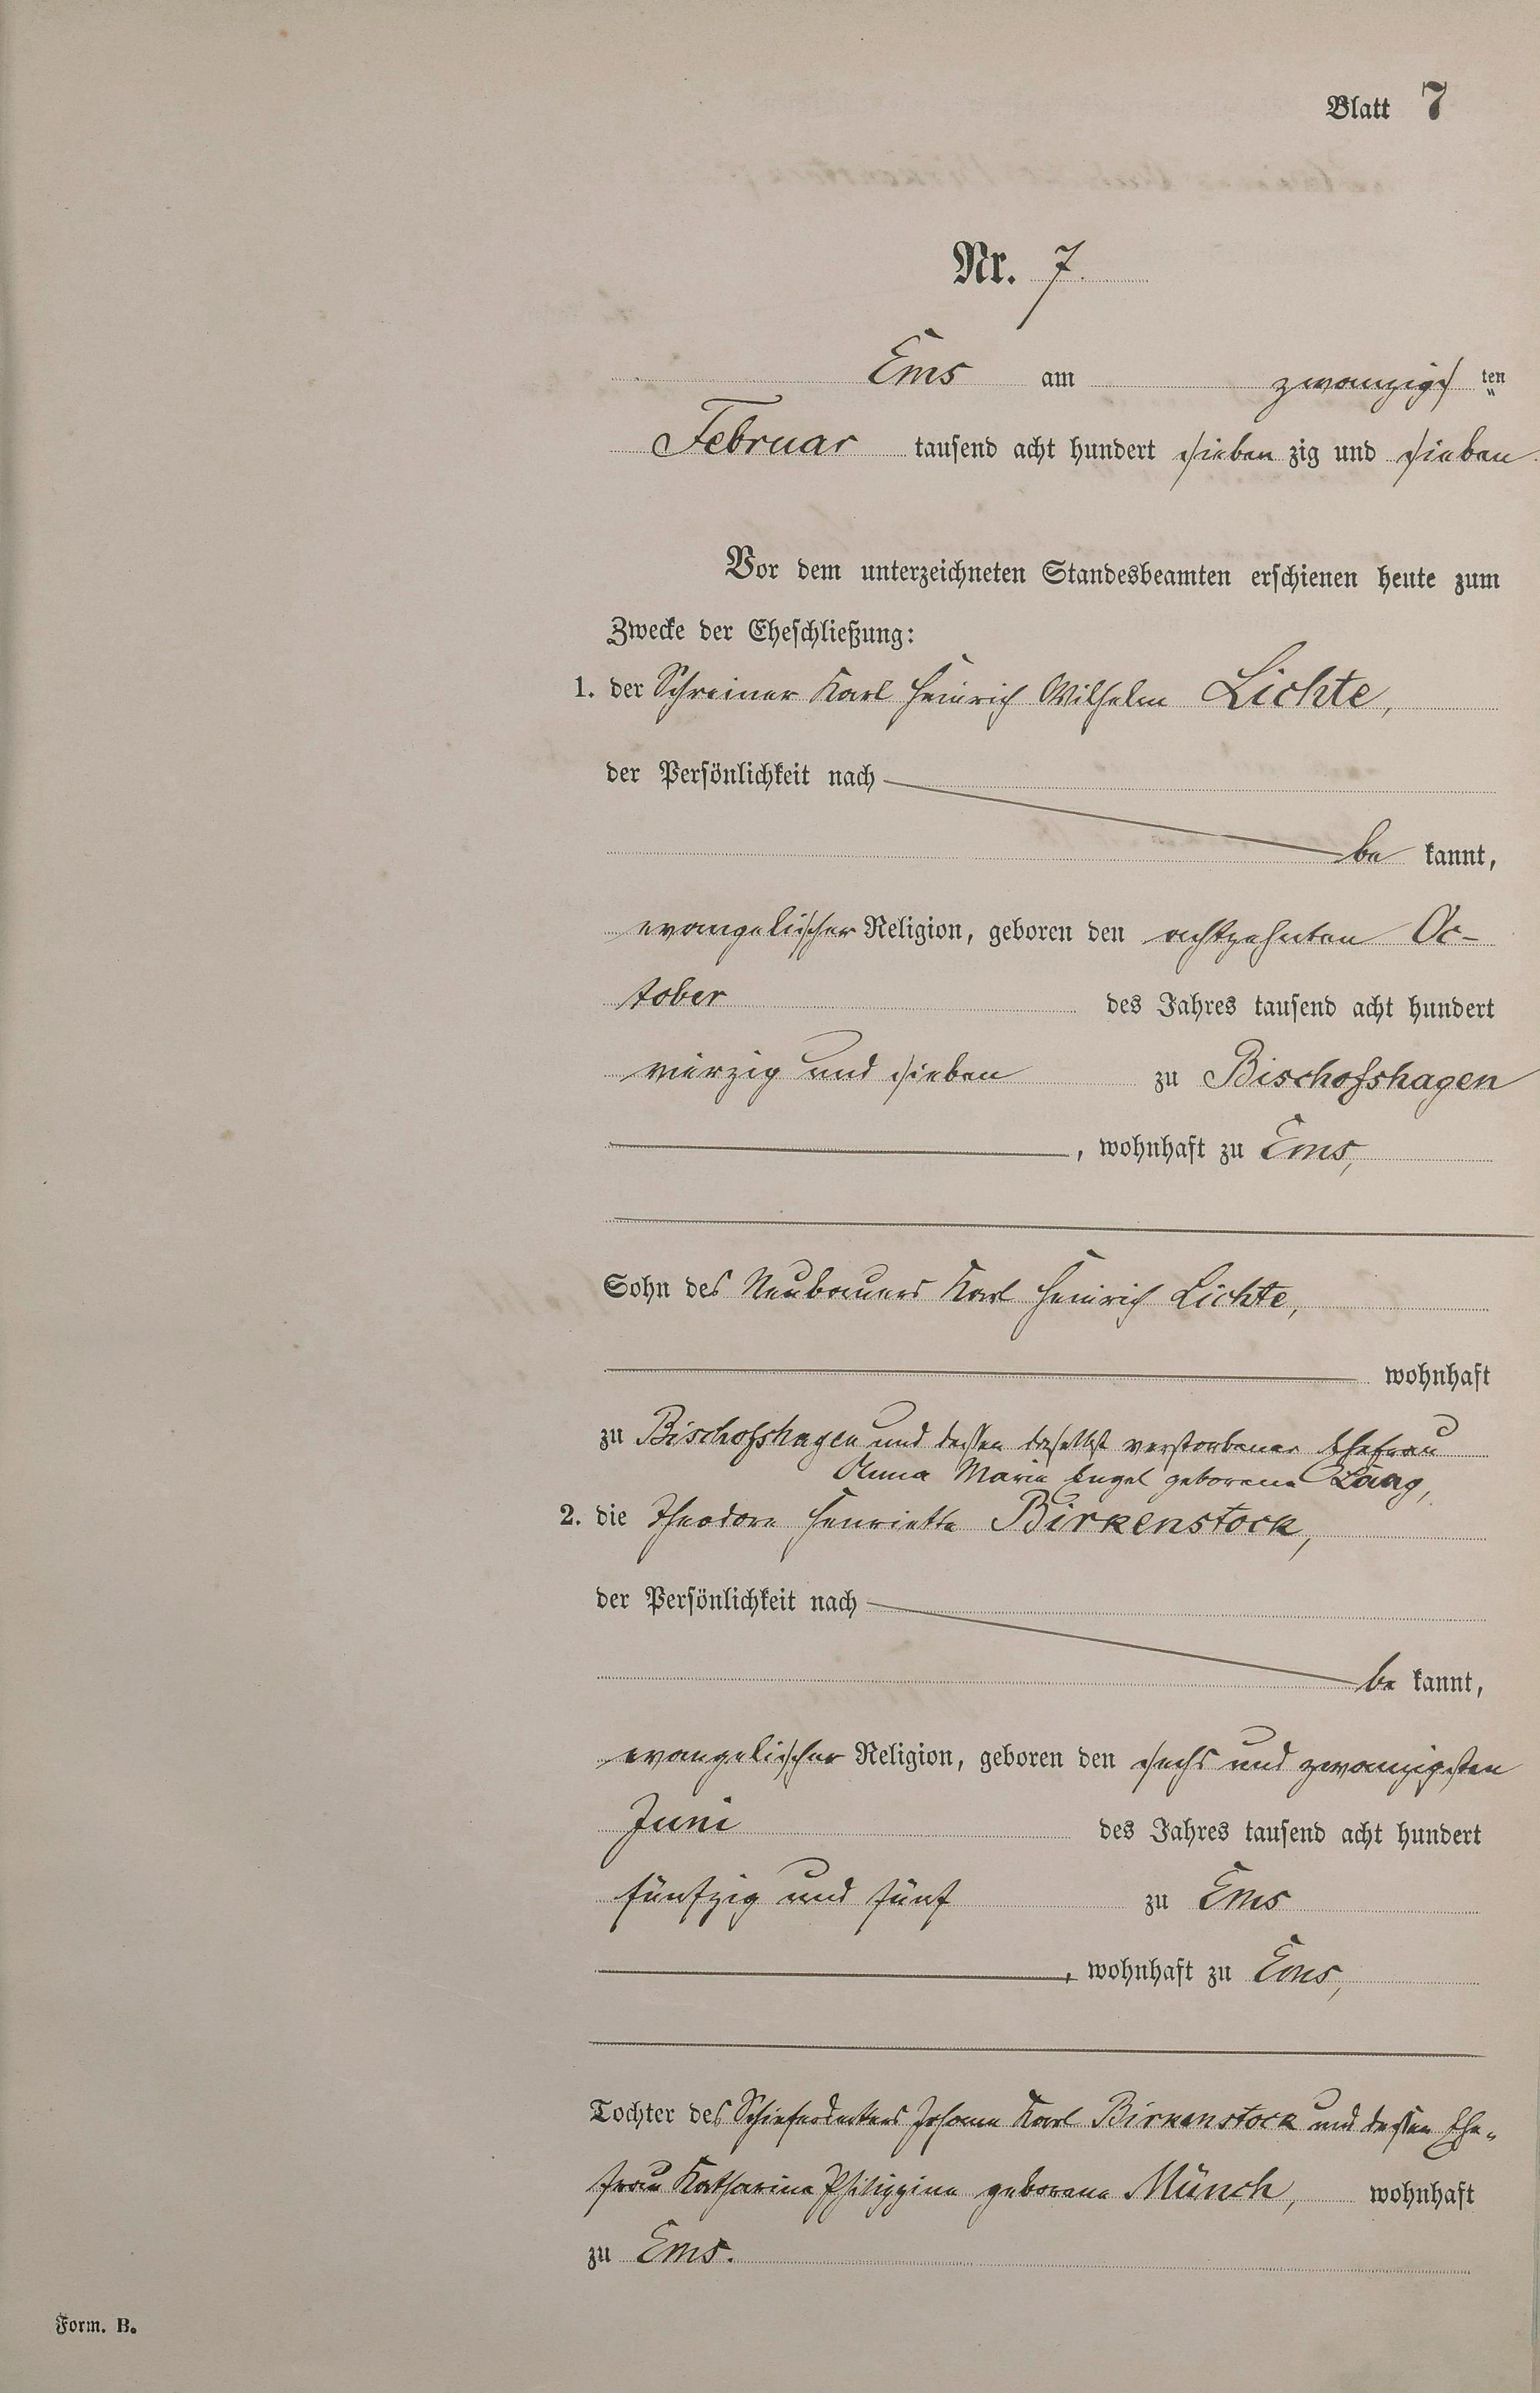 Blatt 7
Nr. 7.
Ems am zwanzigsten
Februar tausend acht hundert sieben zig und sieben.
Vor dem unterzeichneten Standesbeamten erschienen heute zum
Zwecke der Eheschließung:
1. der Schreiner Karl Heinrich Wilhelm Lichte,
der Persönlichkeit nach
be kannt,
evangelischer Religion, geboren den achtzehnten Oc-
tober des Jahres tausend acht hundert
vierzig und sieben zu Bischofshagen
, wohnhaft zu Ems,
Sohn des Neubauers Karl Heinrich Lichte,
wohnhaft
zu Bischofshagen und dessen daselbst verstorbener Ehefrau
Anna Marie Engel geborene
2. die Theodore Henriette Birkenstock,
der Persönlichkeit nach
be kannt,
evangelischer Religion, geboren den sechs und zwanzigsten
Juni des Jahres tausend acht hundert
fünfzig und fünf zu Ems
, wohnhaft zu Ems,
Tochter des Schieferdeckers Johann Karl Birkenstock und dessen Ehe-
frau Katharina Philippine geborene Münch, wohnhaft
zu Ems.
Form. B.